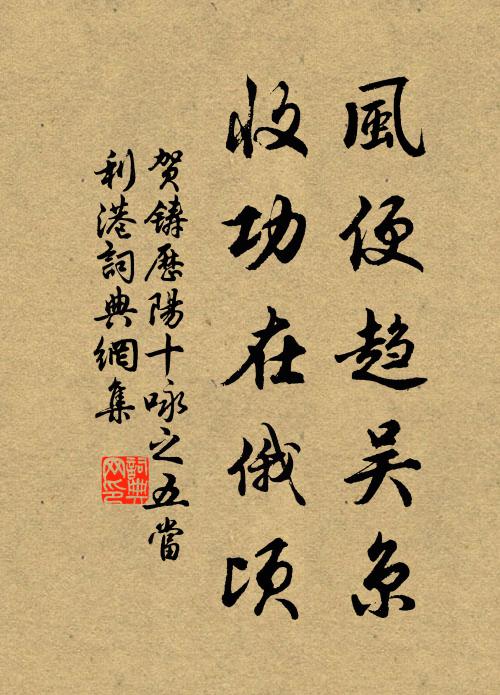 風便趋吴京
收功在俄顷
贺鑄歷陽十咏之五當
利港詞典網集
詞典网印